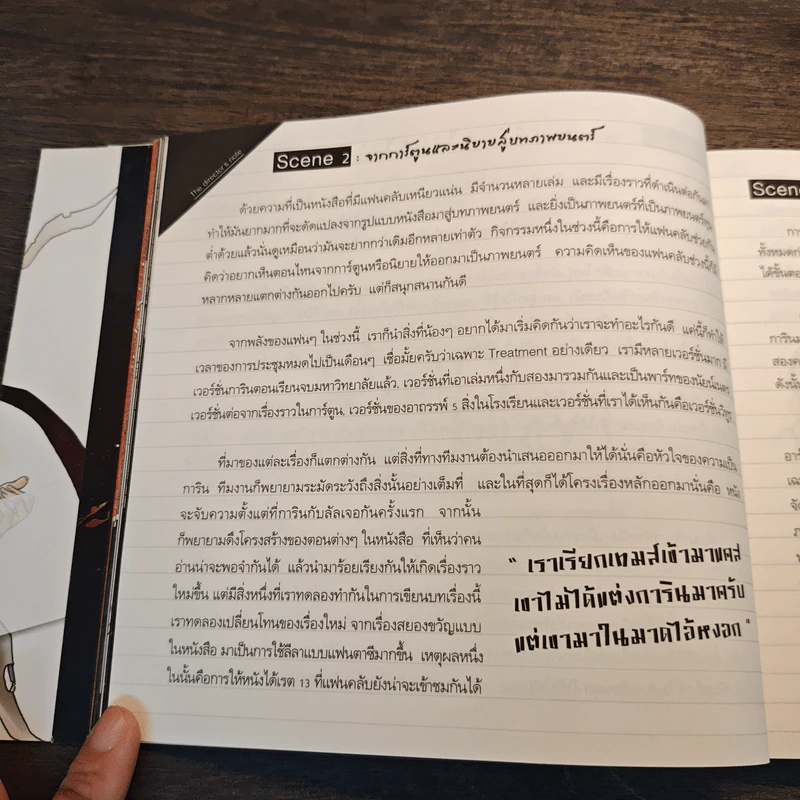 The director's note
Scene 2 : จากการ์ตูนและนิยายสู่บทภาพยนตร์
ด้วยความที่เป็นหนังสือที่มีแฟนคลับเหนียวแน่น มีจำนวนหลายเล่ม และมีเรื่องราวที่ดำเนินต่อกันมา
ทำให้มันยากมากที่จะดัดแปลงจากรูปแบบหนังสือมาสู่บทภาพยนตร์ และยิ่งเป็นภาพยนตร์ที่เป็นภาพยนตร์ทุน
ต่ำด้วยแล้วนั่นดูเหมือนว่ามันจะยากกว่าเดิมอีกหลายเท่าตัว กิจกรรมหนึ่งในช่วงนี้คือการให้แฟนคลับช่วยกัน
คิดว่าอยากเห็นตอนไหนจากการ์ตูนหรือนิยายให้ออกมาเป็นภาพยนตร์ ความคิดเห็นของแฟนคลับช่วงนี้ก็มี
หลากหลายแตกต่างกันออกไปครับ แต่ก็สนุกสนานกันดี
จากพลังของแฟนๆ ในช่วงนี้ เราก็นำสิ่งที่น้องๆ อยากได้มาเริ่มคิดกันว่าเราจะทำอะไรกันดี แค่นี้ก็ทำให้
เวลาของการประชุมหมดไปเป็นเดือนๆ เชื่อมั้ยครับว่าเฉพาะ Treatment อย่างเดียว เรามีหลายเวอร์ชั่นมาก มี
เวอร์ชั่นการินตอนเรียนจบมหาวิทยาลัยแล้ว, เวอร์ชั่นที่เอาเล่มหนึ่งกับสองมารวมกันและเป็นพาร์ทของนัยน์เนตร
เวอร์ชั่นต่อจากเรื่องราวในการ์ตูน, เวอร์ชั่นของอาถรรพ์ 5 สิ่งในโรงเรียนและเวอร์ชั่นที่เราได้เห็นกันคือเวอร์ชั่น
ที่มาของแต่ละเรื่องก็แตกต่างกัน แต่สิ่งที่ทางทีมงานต้องนำเสนอออกมาให้ได้นั่นคือหัวใจของความเป็น
การิน ทีมงานก็พยายามระมัดระวังถึงสิ่งนั้นอย่างเต็มที่ และในที่สุดก็ได้โครงเรื่องหลักออกมานั่นคือ หนัง
จะจับความตั้งแต่ที่การินกับลัลเจอกันครั้งแรก จากนั้น
ก็พยายามดึงโครงสร้างของตอนต่างๆ ในหนังสือ ที่เห็นว่าคน
อ่านน่าจะพอจำกันได้ แล้วนำมาร้อยเรียงกันให้เกิดเรื่องราว
ใหม่ขึ้น แต่มีสิ่งหนึ่งที่เราทดลองทำกันในการเขียนบทเรื่องนี้
เราทดลองเปลี่ยนโทนของเรื่องใหม่ จากเรื่องสยองขวัญแบบ
ในหนังสือ มาเป็นการใช้ลีลาแบบแฟนตาซีมากขึ้น เหตุผลหนึ่ง
ในนั้นคือการให้หนังได้เรต 13 ที่แฟนคลับยังน่าจะเข้าชมกันได้
" เราเรียกเทมส์เข้ามาแคส
เขาไม่ได้แต่งการินมาครับ
แต่เขามาในมาดไอ้หงอก "
Scene
การ
ทั้งหมดก่
ได้ขั้นตอ
การินม
สองค
ดังนั้น
อาร์
เฉ
จั